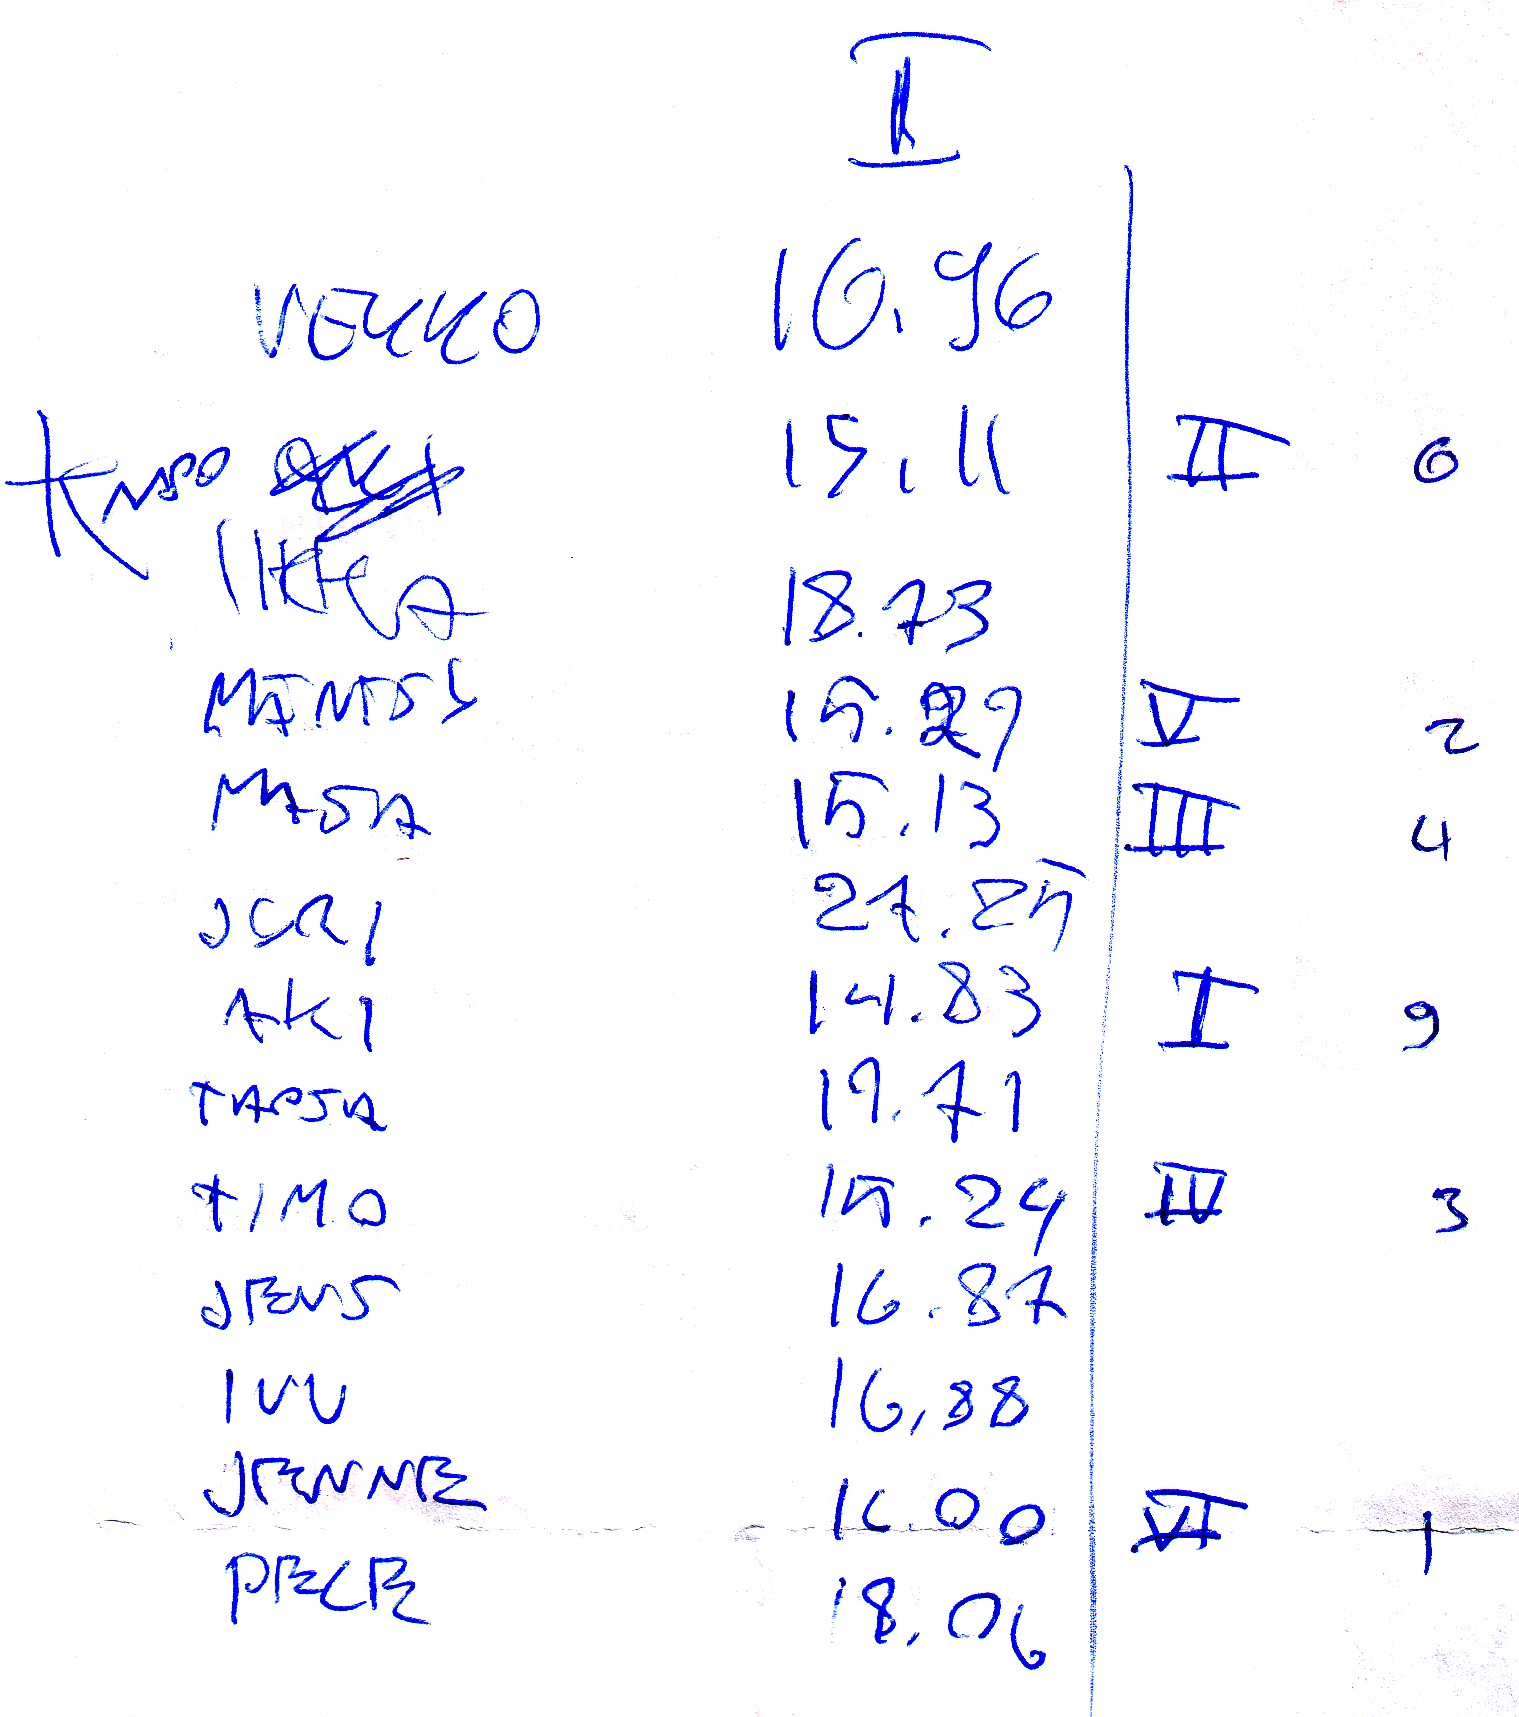 I
VEKKO 16.96
15.11 II 6
ILKKA 18.73
15.29 V 2
MASA 15.13 III 4
JORI 27.25
AKI 14.83 I 9
TAPSA 19.71
TIMO 15.24 IV 3
JENS 16.87
IVU 16.88
JENNE 16.00 VI 1
PELE 18.06